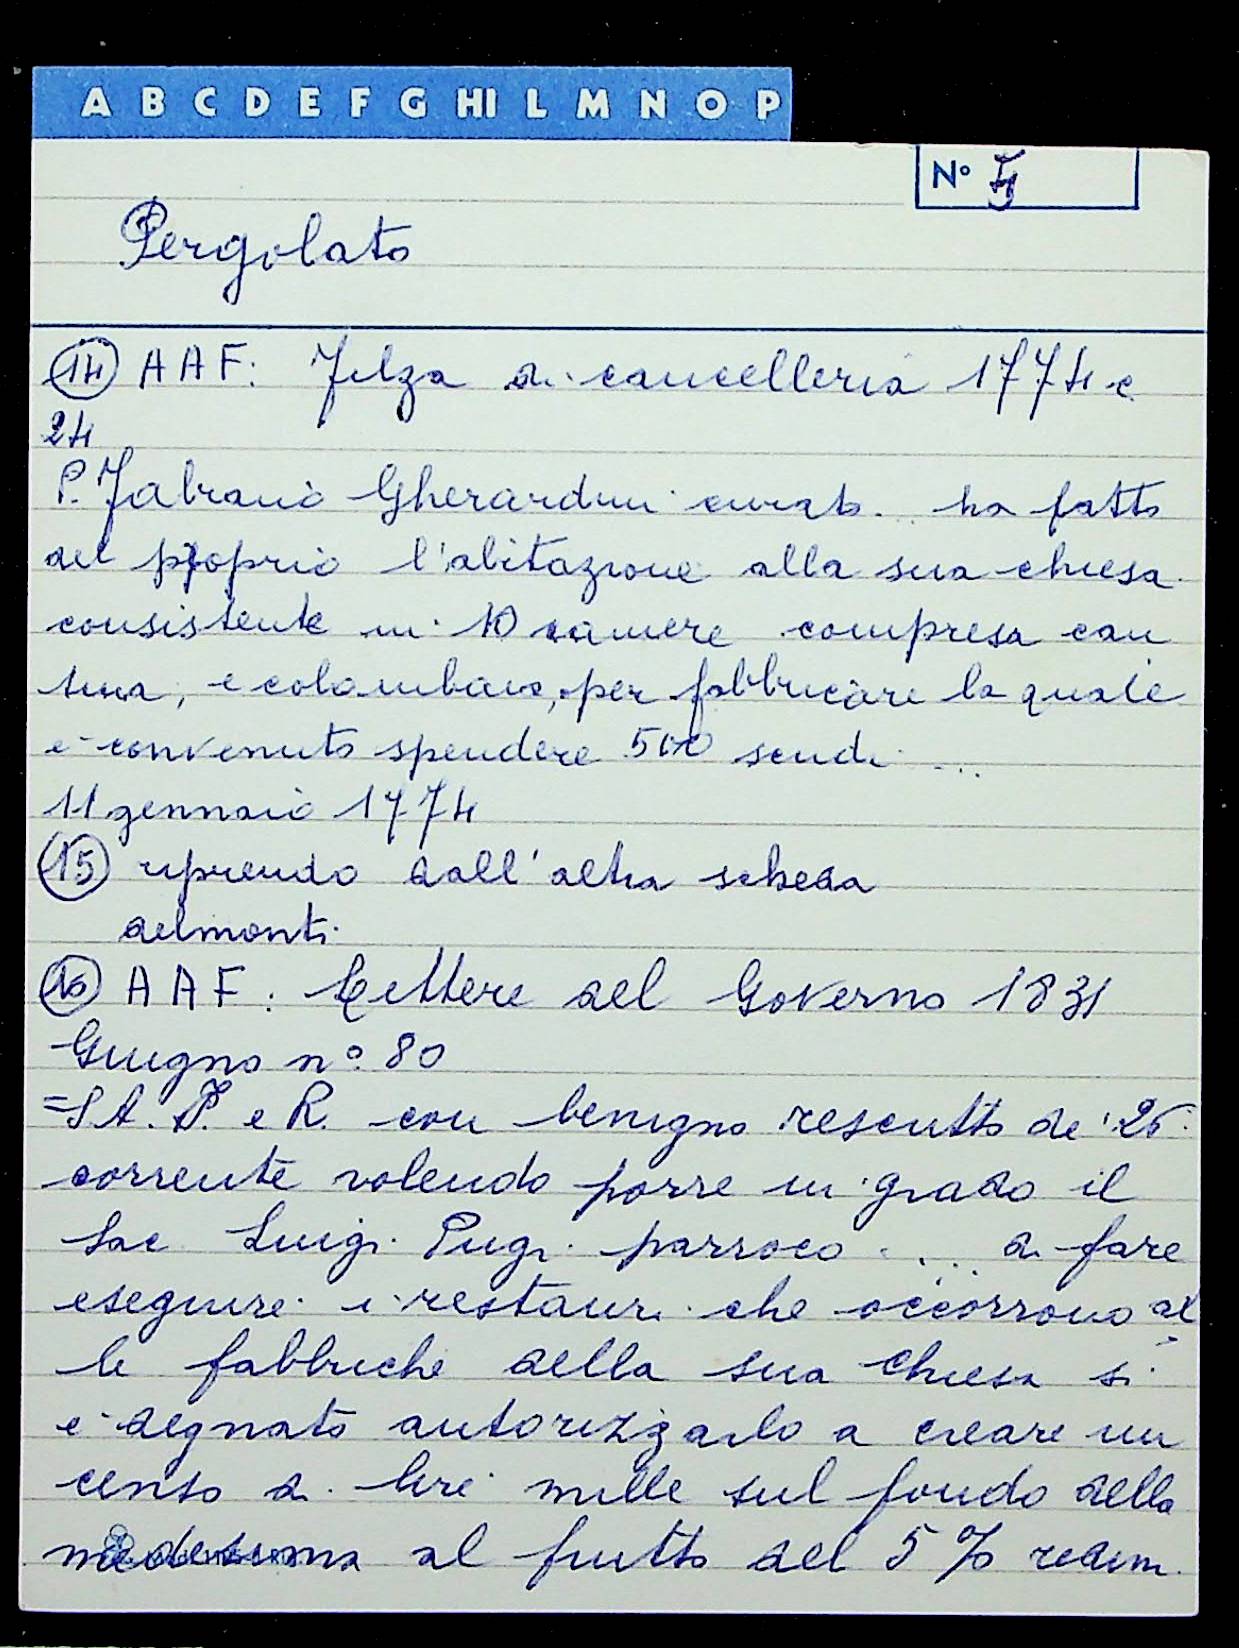 A B C D E F G HI L M N O P
N° 5
Pergolato
14 A A F: Filza di cancelleria 1774 c
24
P. Fabiano Gherardini curato... ha fatto
del proprio l'abitazione alla sua chiesa
consistente in 10 camere compresa can
tina, e colombaia, per fabbricare la quale
è convenuto spendere 500 scudi ...
11 gennaio 1774
15 riprendo dall'altra scheda
delmonti
16 A A F: Lettere del Governo 1831
Giugno n° 80
=S A. I. e R. con benigno rescritto de' 25
corrente volendo porre in grado il
Sac Luigi Pugi parroco .... di fare
eseguire i restauri che occorrono al
le fabbriche della sua chiesa si
è degnato autorizzarlo a creare un
censo di lire mille sul fondo della
medesima al frutto del 5 % redim.